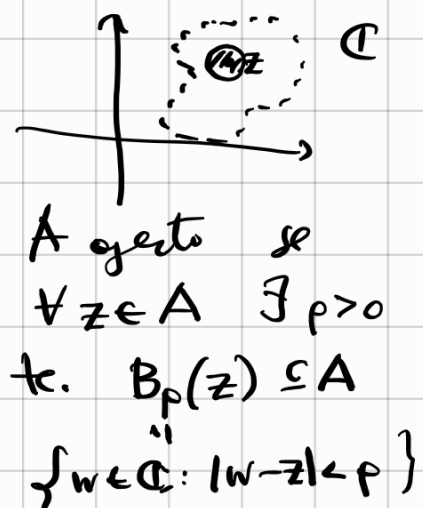 z ℂ
A aperto se
∀ z ∈ A ∃ ρ > 0
t.c. B_ρ(z) ⊆ A
"
{w ∈ ℂ : |w - z| < ρ}